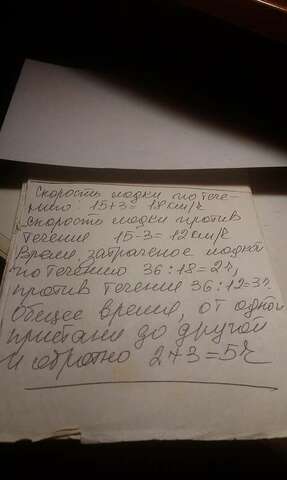 Скорость лодки по тече-
нию: 15+3=18 км/ч
Скорость лодки против
течения 15-3=12 км/ч
Время, затраченое лодкой
по течению 36:18=2ч,
против течения 36:12=3ч.
Общее время, от одной
пристани до другой
и обратно 2+3=5ч